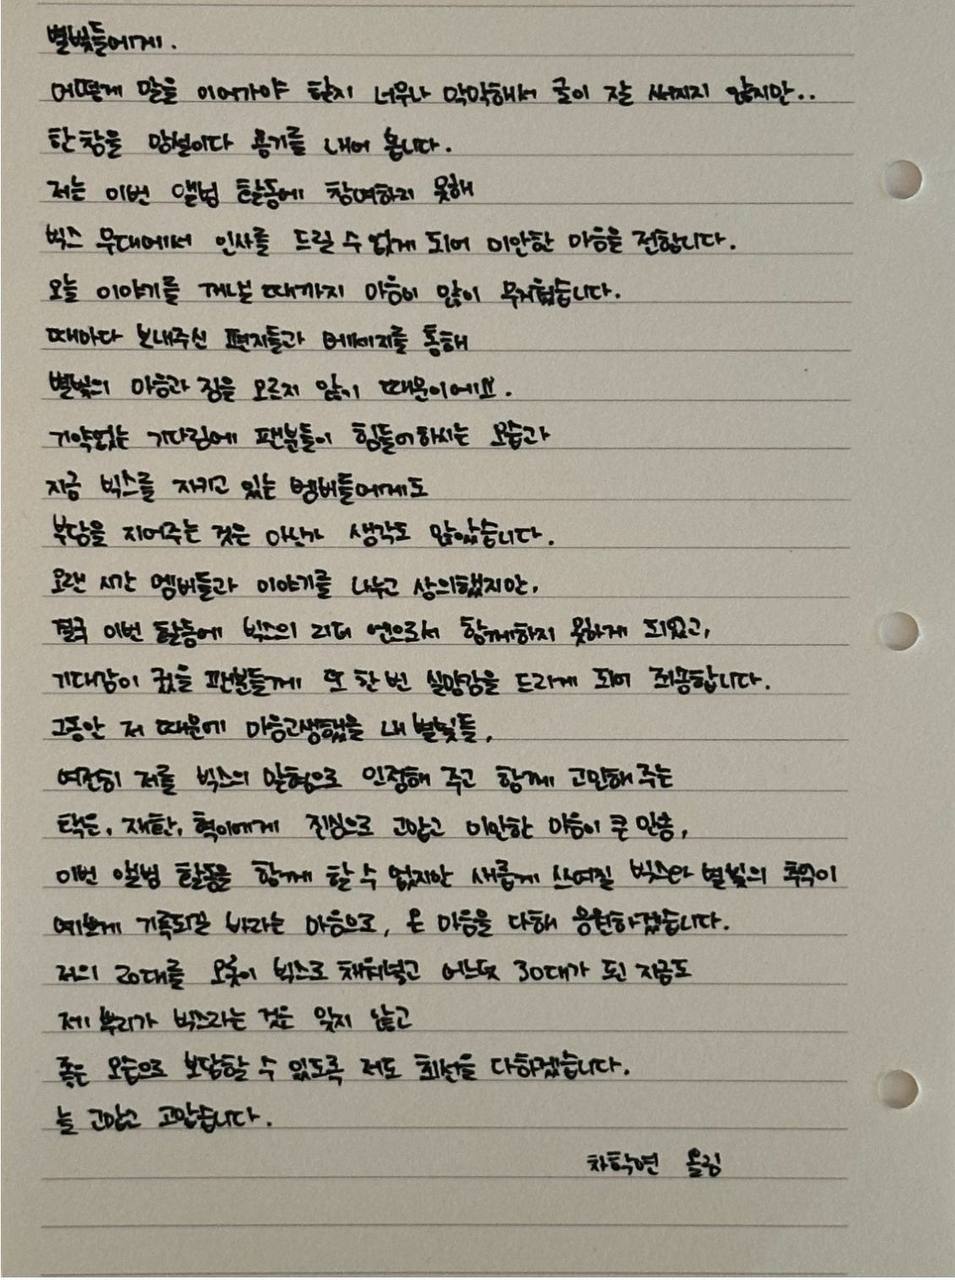 별빛들에게.
어떻게 말을 이어가야 할지 너무나 막막해서 글이 잘 써지지 않지만..
한참을 망설이다 용기를 내어 봅니다.
저는 이번 앨범 활동에 참여하지 못해
빅스 무대에서 인사를 드릴 수 없게 되어 미안한 마음을 전합니다.
오늘 이야기를 꺼낼 때까지 마음이 많이 무거웠습니다.
때마다 보내주신 편지들과 메세지를 통해
별빛의 마음과 짐을 모르지 않기 때문이에요.
기약없는 기다림에 팬분들이 힘들어하시는 모습과
지금 빅스를 지키고 있는 멤버들에게도
부담을 지어주는 것은 아닌가 생각도 많았습니다.
오랜 시간 멤버들과 이야기를 나누고 상의했지만,
결국 이번 활동에 빅스의 리더 엔으로서 함께하지 못하게 되었고,
기대감이 컸을 팬분들께 또 한 번 실망감을 드리게 되어 죄송합니다.
그동안 저 때문에 마음고생했을 내 별빛들,
여전히 저를 빅스의 맏형으로 인정해 주고 함께 고민해 주는
택운, 재환, 혁이에게 진심으로 고맙고 미안한 마음이 큰 만큼,
이번 앨범 활동을 함께 할 수 없지만 새롭게 쓰여질 빅스와 별빛의 추억이
예쁘게 기록되길 바라는 마음으로, 온 마음을 다해 응원하겠습니다.
저의 20대를 오롯이 빅스로 채워넣고 어느덧 30대가 된 지금도
제 뿌리가 빅스라는 것은 잊지 않고
좋은 모습으로 보답할 수 있도록 저도 최선을 다하겠습니다.
늘 고맙고 고맙습니다.
차학연 올림